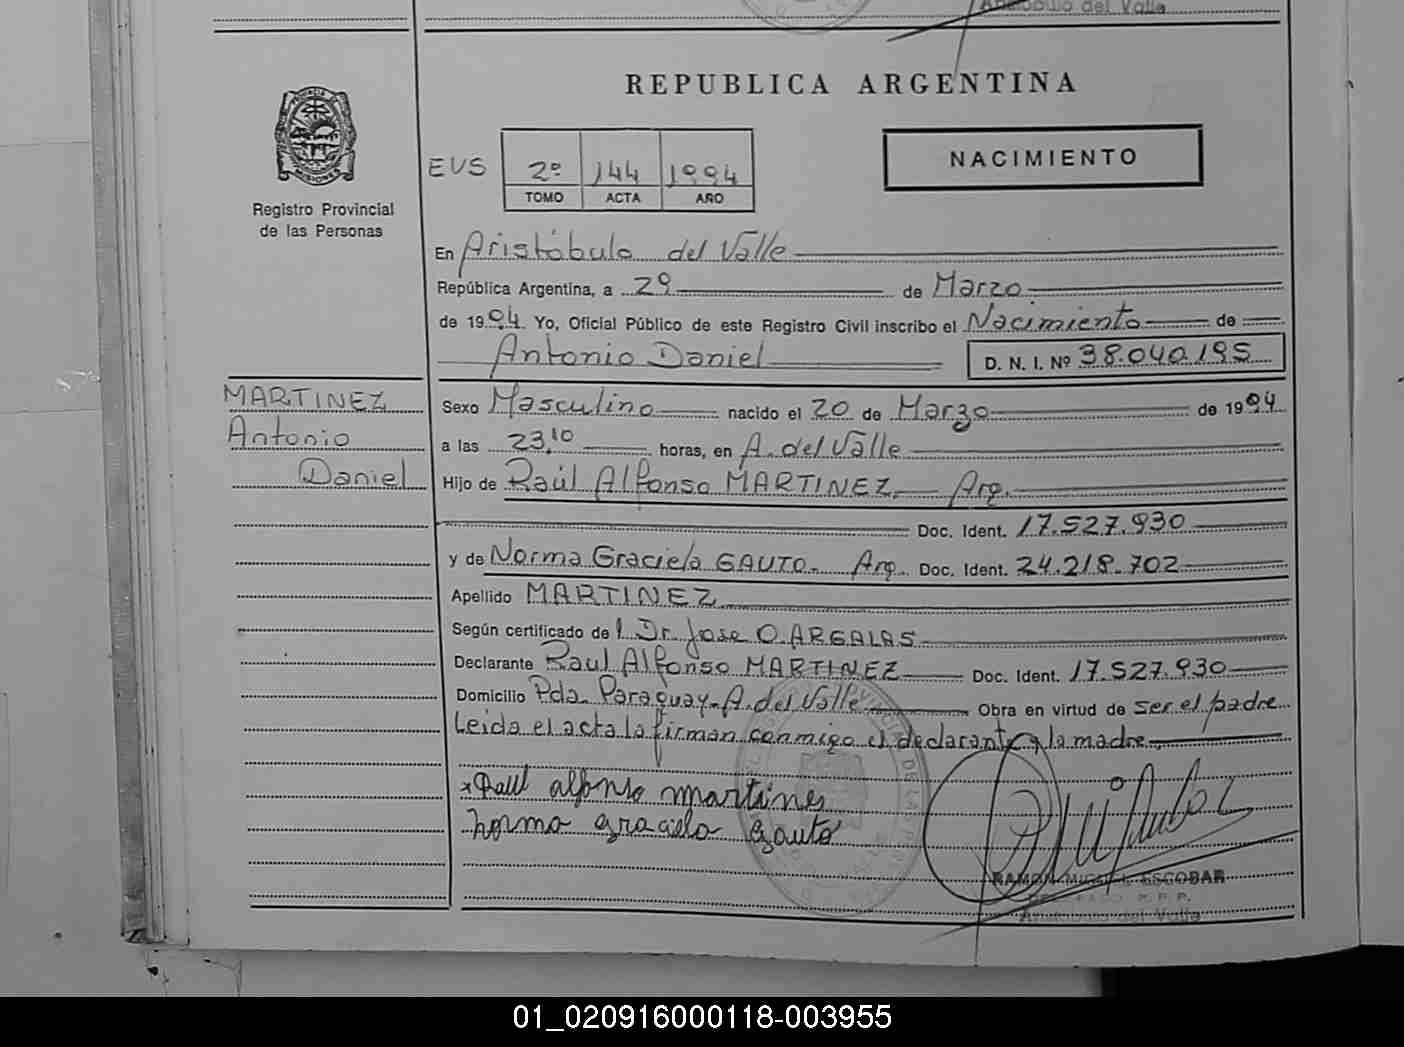 Aristóbulo del Valle
REPUBLICA ARGENTINA
PROVINCIA DE
MISIONES
Registro Provincial
de las Personas
EUS 2º 144 1994
TOMO ACTA AÑO
NACIMIENTO
En Aristóbulo del Valle
República Argentina, a 29 de Marzo
de 1994. Yo, Oficial Público de este Registro Civil inscribo el Nacimiento de
Antonio Daniel D. N. I. Nº 38.040.195
MARTINEZ
Antonio
Daniel
Sexo Masculino nacido el 20 de Marzo de 1994
a las 23,10 horas, en A. del Valle
Hijo de Raúl Alfonso MARTINEZ. Arg.
Doc. Ident. 17.527.930
y de Norma Graciela GAUTO. Arg. Doc. Ident. 24.218.702
Apellido MARTINEZ
Según certificado de l Dr. Jose O. ARGALAS
Declarante Raul Alfonso MARTINEZ Doc. Ident. 17.527.930
Domicilio Pda. Paraguay - A. del Valle Obra en virtud de ser el padre
Leida el acta la firman conmigo el declarante y la madre
x Raul alfonso martines
norma graciela gauto
RAMON MIGUEL ESCOBAR
R.P.P.
Aristóbulo del Valle
01_020916000118-003955